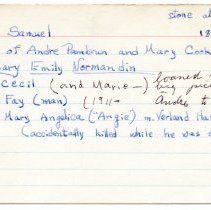 stone al
Samuel 18
of Andre Pambrun and Mary Cook
ary Emily Normandin
Cecil (and Marie - loaned
big pic
Fay (man) (1911- Andre to
Mary Angelica ("Angie) m. Verland Ha
(accidentally killed while he was a